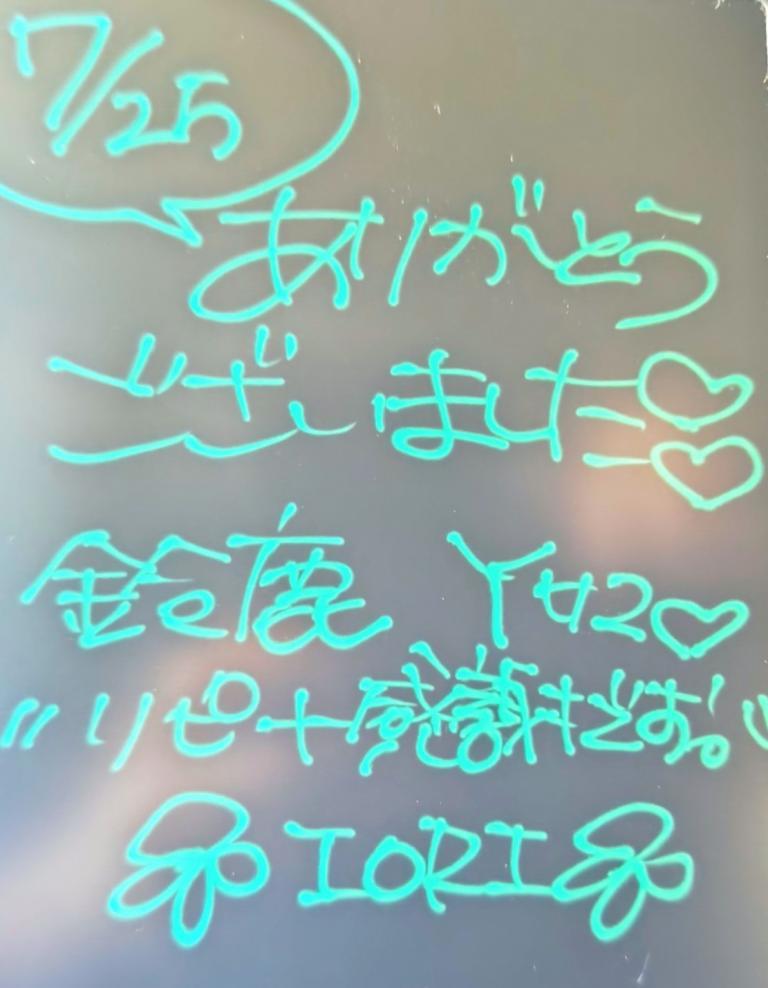 7/25
ありがとう
ございました♡♡
鈴鹿 Y42♡
"リピ+感謝だお。"
IORI